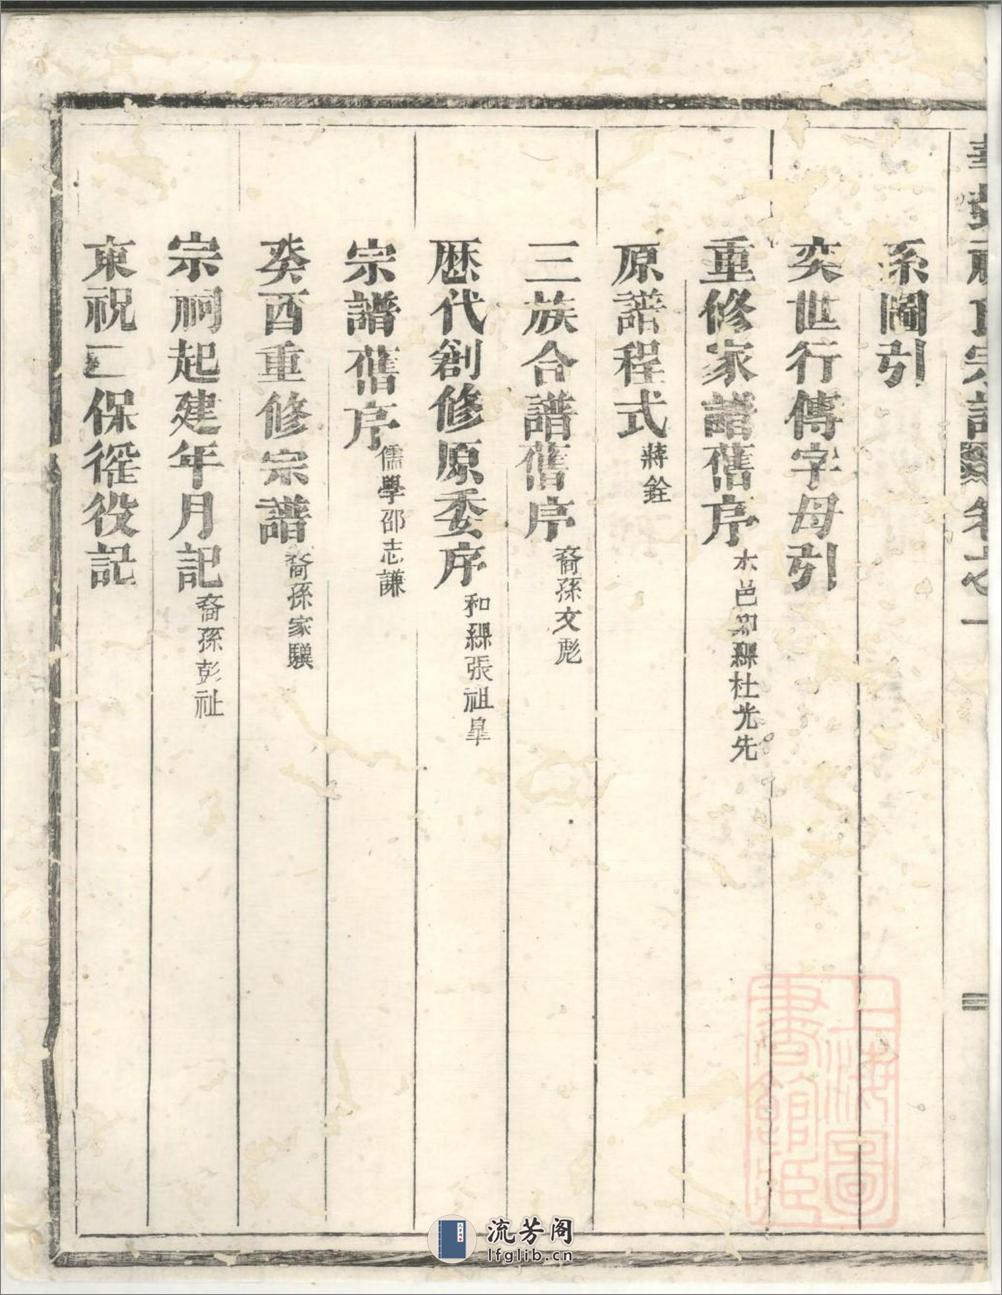 系圖引
奕世行傳字母引
重修家譜舊序 本邑知縣杜光先
原譜程式 蔣銓
三族合譜舊序 裔孫文彪
歷代創修原委序 和縣張祖皐
宗譜舊序 儒學邵志謙
癸酉重修宗譜 裔孫家驥
宗祠起建年月記 裔孫彭祉
東祝二保徭役記
上海圖書館藏
流芳阁
lfglib.cn